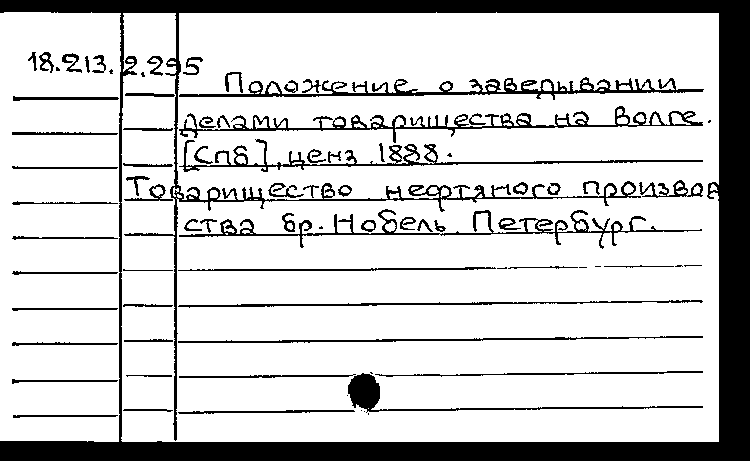 18.213.2.295
Положение о заведывании
делами товарищества на Волге.
[Спб], ценз. 1888.
Товарищество нефтяного произвов
ства бр. Нобель. Петербург.